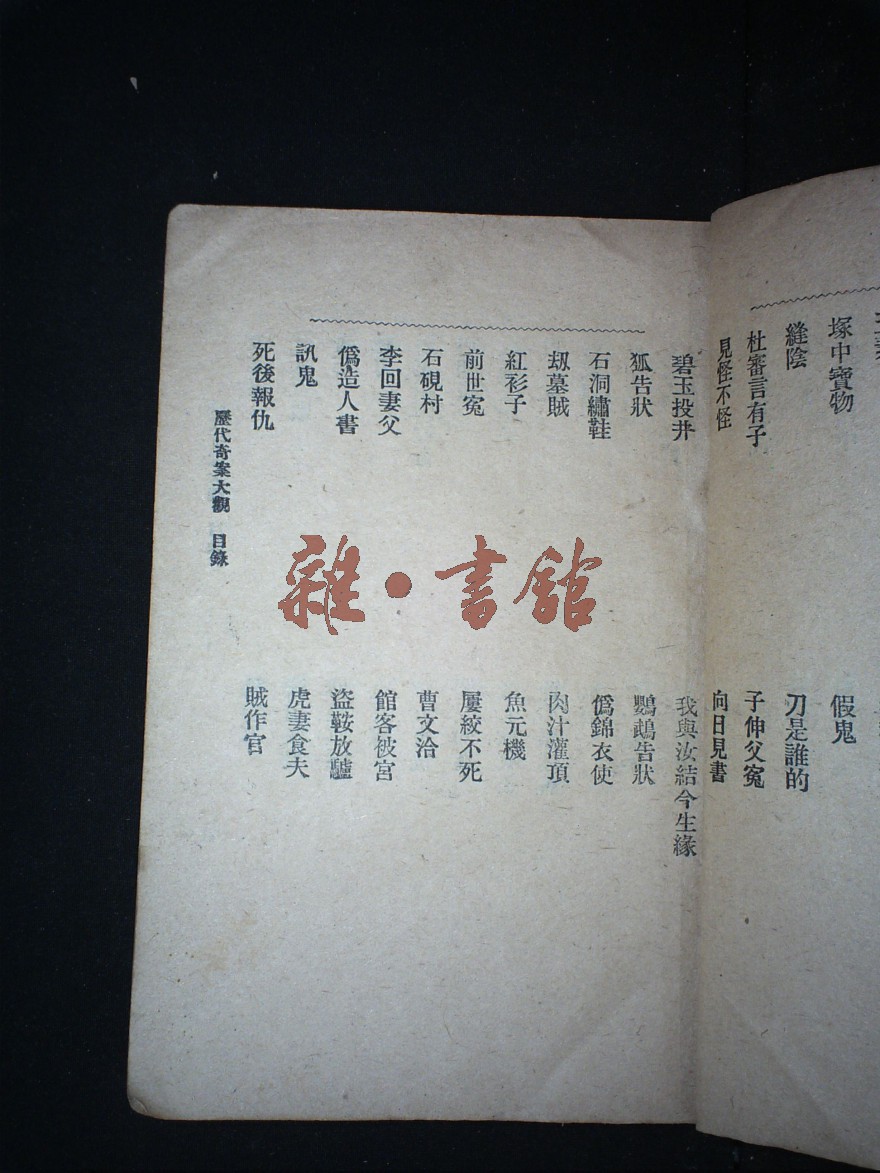 塚中寶物
縫陰
杜審言有子
見怪不怪
假鬼
刃是誰的
子伸父冤
向日見書
碧玉投井
狐告狀
石洞繡鞋
刼墓賊
紅衫子
前世冤
石硯村
李回妻父
僞造人書
訊鬼
死後報仇
我與汝結今生緣
鸚鵡告狀
僞錦衣使
肉汁灌頂
魚元機
屢絞不死
曹文洽
館客被宮
盜鞍放驢
虎妻食夫
賊作官
歷代奇案大觀 目錄
雜·書館